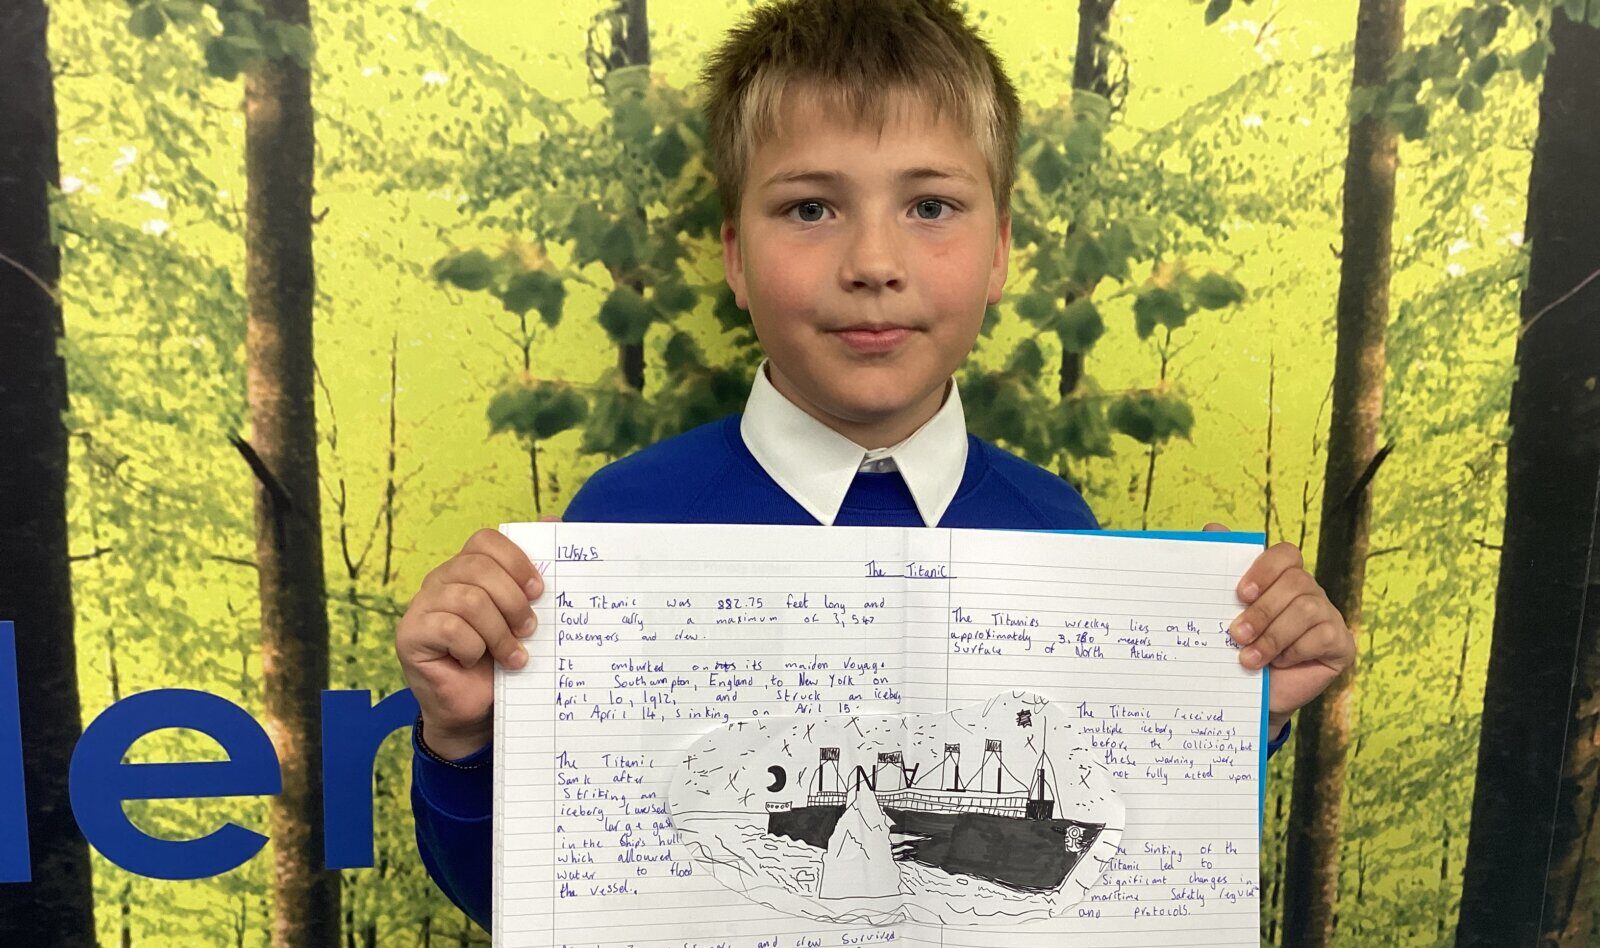 12/5/25
The Titanic
The Titanic was 882.75 feet long and
could cally a maximum of 3,547
passengers and crew.
It emburked on its maiden voyage
from Southampton, England, to New York on
April 10, 1912, and struck an iceberg
on April 14, sinking on Aril 15.
The Titanic
Sank after
Striking an
iceberg caused
a large gash
in the Ship's hull
which alloured
water to flood
the vessel.
and crew survived
The Titanics wreckag lies on the
approximately 3,780 meters below the
Surface of North Atlantic.
The Titanic received
multiple iceberg warnings
before the collision, but
these warning were
not fully acted upon
he Sinking of the
Titanic led to
Significant changes in
maritime Safetly regulat
and protocols.
ler